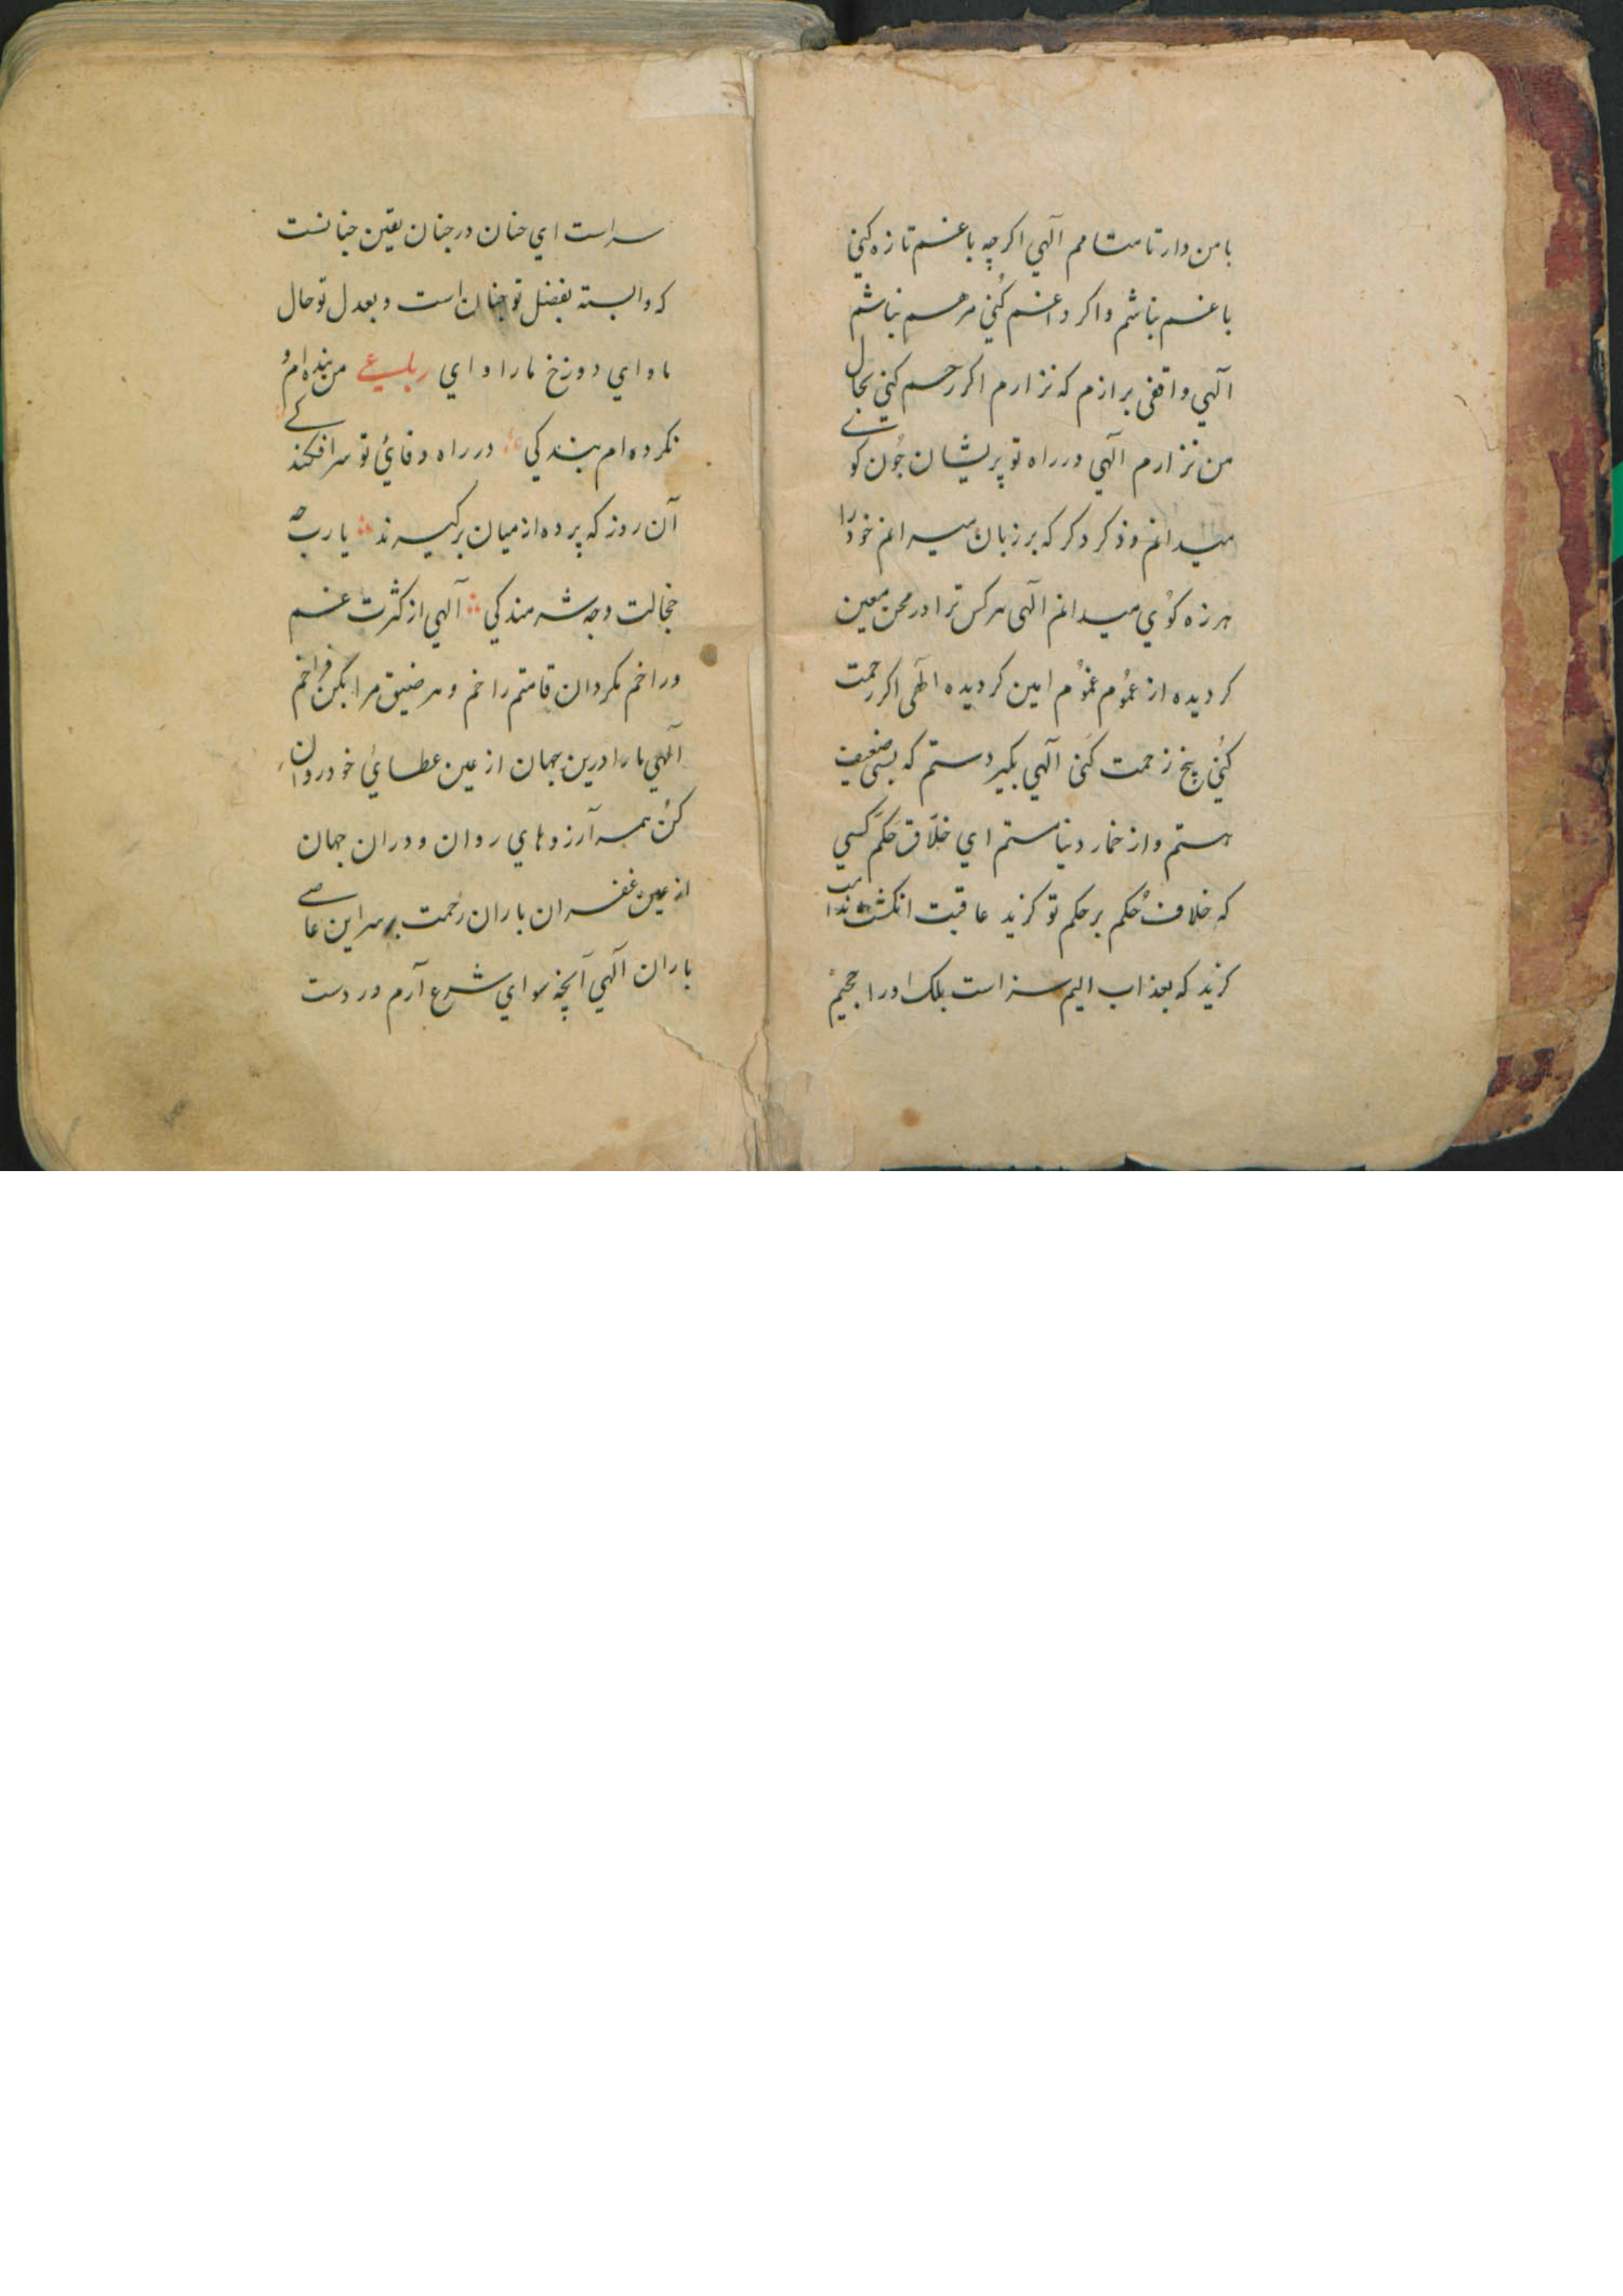 بامن دار تا مشامم آلهي اكرچه باغم تازه كني
باغم بناشم واكر داغم كُني مرهم بناشم
آلهي واقفی برازم كه نزارم اكر رحم كني بحال
من نزارم آلهي درراه تو پريشان چُون كوے
ميدانم و ذكر دكر كه برزبان ميرانم خودرا
هرزه كوُي ميدانم آلهی هركس ترا در محن معين
كرديده از عموُم غموُم امين كرديده الٓهی اكر رحمت
كُني پنج زحمت كَنی آلهي بكير دستم كه بسی ضعيف
هستم واز خمار دنيا مستم اي خلّاق حَكَم كسي
كه خلاف حُكم برحكم تو كزيد عاقبت انكشت ندامت
كزيد كه بعذاب اليم سزاست بلك اورا جحيم
سراست اي حنان درجنان يقين جنانست
كه وابسته بفضل تو جنان است و بعدل تو حال
ماواي دوزخ مارا واي رباعے من بنده ام و
نكرده ام بندكي درراه وفائ تو سرافكندكے
آن روز كه پرده از ميان بركيرند يارب چه
خجالت وچه شرمندكي آلهي از كثرت غم
وراخم مكردان قامتم را خم و هر ضيق مرا بكن فراخم
آلهي مارا درين جهان از عين عطائ خود روان
كُن همه آرزوهاي روان و دران جهان
از عين غفران باران رحمت بر سر اين عاصے
باران آلهي آنچه سواي شرع آرم در دست